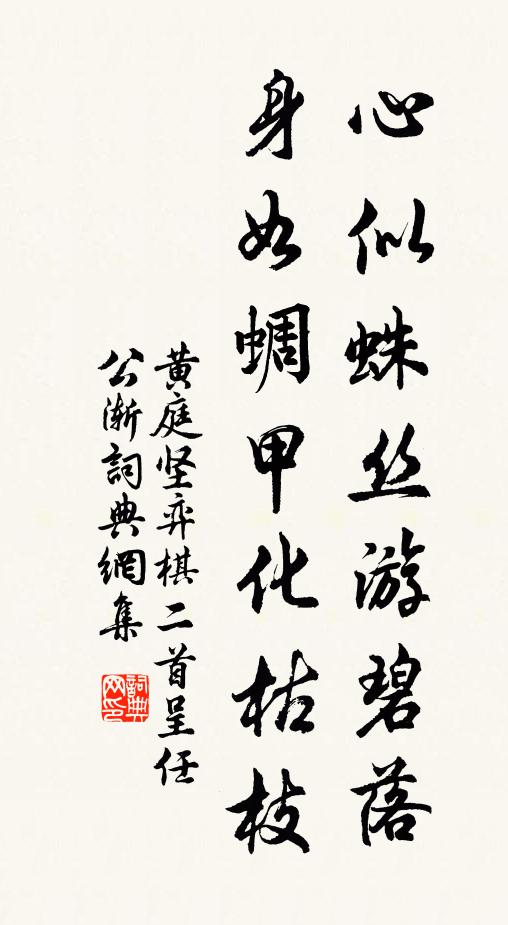 心似蛛丝游碧落
身如蜩甲化枯枝
黄庭坚弈棋二首呈任
公渐詞典網集
詞典
网印